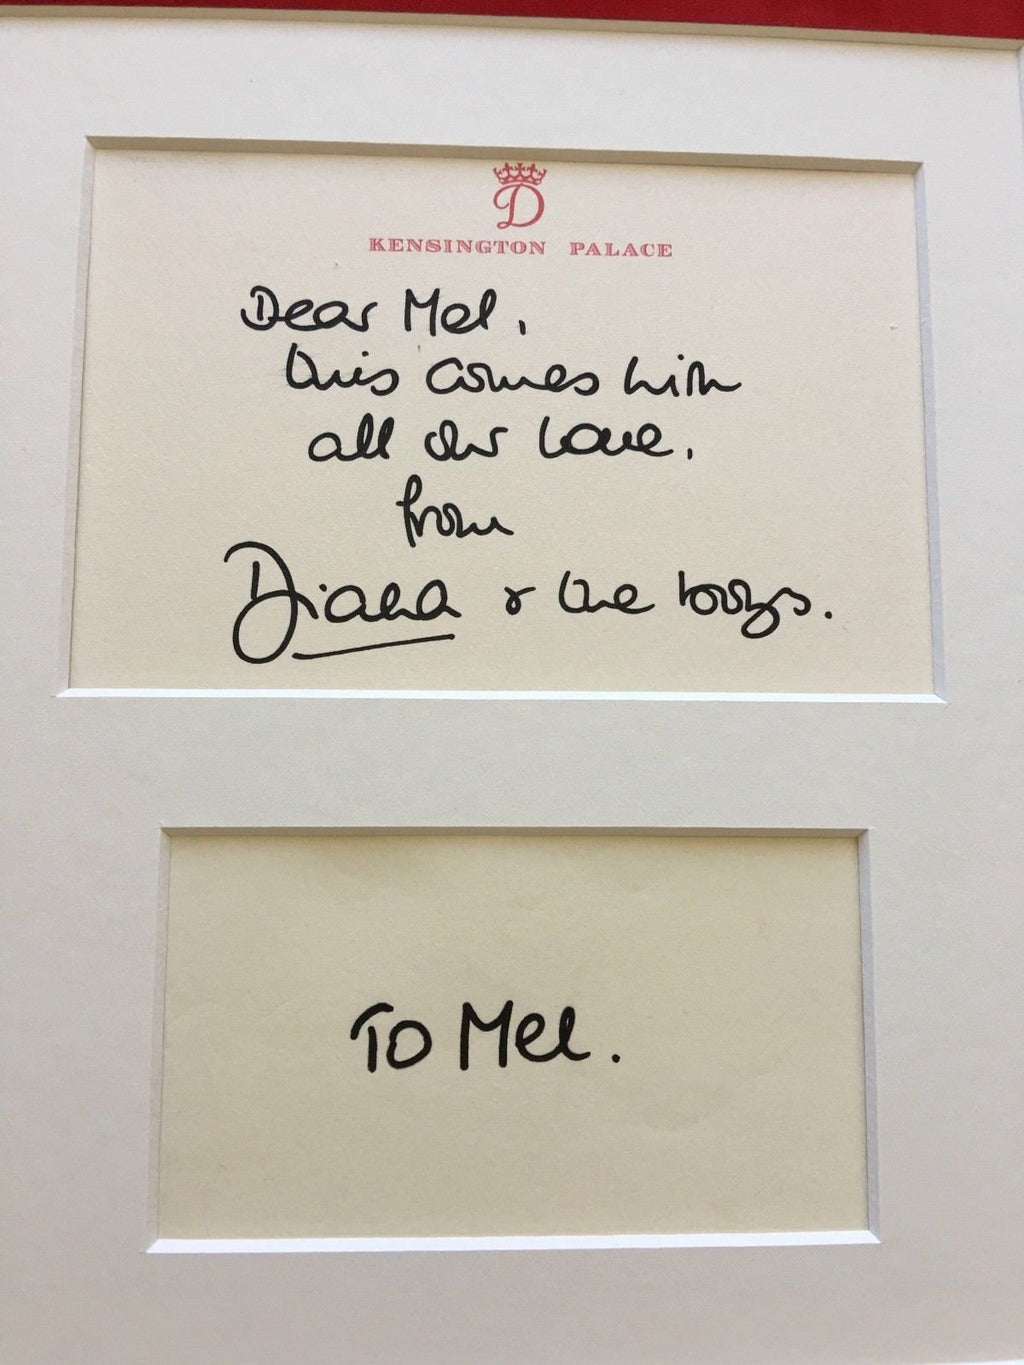 D
KENSINGTON PALACE
Dear Mel,
this comes with
all our love.
from
Diana & the boys.
To Mel.